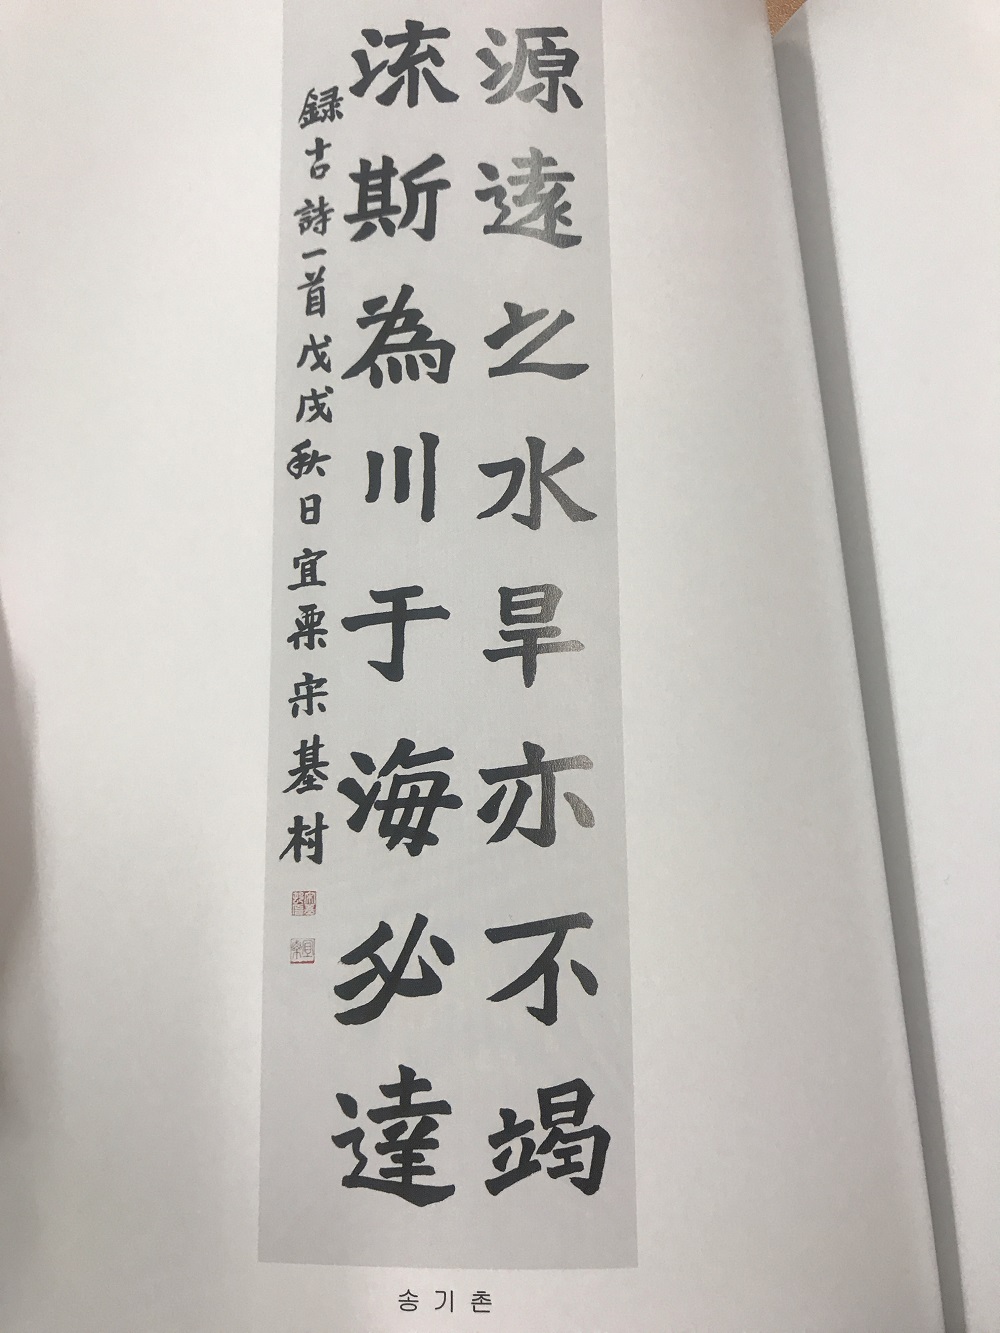 源遠之水旱亦不竭
流斯為川于海必達
録古詩一首戊戌秋日宜栗宋基村
송기촌